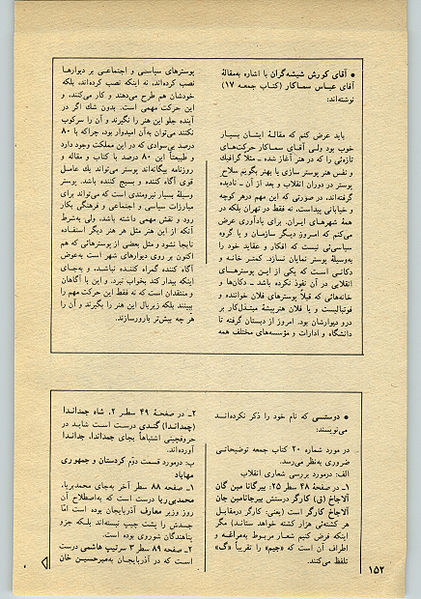 ● آقای کورش شیشه‌گران با اشاره به‌مقالهٔ
آقای عباس سماکار (کتاب جمعه ۱۷)
نوشته‌اند:
باید عرض کنم که مقالهٔ ایشان بسیار
خوب بود ولی آقای سماکار حرکت‌های
تازه‌ئی را که در هنر آغاز شده ـ مثلاً گرافیک
و نفس هنر پوستر سازی یا بهتر بگویم سلاح
پوستر در دوران انقلاب و بعد از آن ـ نادیده
گرفته‌اند، در صورتی که این مهم درهر کوچه
و خیابانی پیداست. نه فقط در تهران بلکه در
همهٔ شهرهای ایران. برای یادآوری عرض
می‌کنم که امروز دیگر سازمان و یا گروه
سیاسی‌ئی نیست که افکار و عقاید خود را
به‌وسیلهٔ پوستر نمایان نسازد. کمتر خانه و
دکانی است که یکی از این پوسترهای
انقلابی در آن نفوذ نکرده باشد ـ دکان‌ها و
خانه‌هائی که قبلاً پوسترهای فلان خواننده و
فوتبالیست و یا فلان هنرپیشهٔ مبتذل‌کار بر
درو دیوارشان بود. امروز از دبستان گرفته تا
دانشگاه و ادارات و مؤسسه‌های مختلف همه
پوسترهای سیاسی و اجتماعی بر دیوارها
نصب کرده‌اند، نه اینکه نصب کرده‌اند، بلکه
خودشان هم طرح می‌دهند و کار می‌کنند، و
این حرکت مهمی است. بدون شك اگر در
آینده جلو این هنر را نگیرند و آن را سرکوب
نکنند می‌توان به‌آن امیدوار بود، چراکه با ۸۰
درصد بی‌سوادی که در این مملکت وجود دارد
و طبیعتاً این ۸۰ درصد با کتاب و مقاله و
روزنامه بیگانه‌اند پوستر می‌تواند یك عامل
قوی آگاه کننده و بسیج کننده باشد. پوستر
وسیلهٔ بسیار نیرومندی است که می‌تواند برای
مبارزات سیاسی و اجتماعی و فرهنگی بکار
رود و نقش مهمی داشته باشد، ولی به‌شرط
آنکه از این هنر مثل هر هنر دیگر استفاده
نابجا نشود و مثل بعضی از پوسترهائی که هم
اکنون بر روی دیوارهای شهر است به‌عوض
آگاه کننده گمراه کننده نباشد، و به‌جای
اینکه بیدار کند بخواب نبرد. و این با آگاهان
و منتقدان است که نه فقط این حرکت مهم را
ببینند بلکه زیربال این هنر را بگیرند و آن را
هر چه بیش‌تر بارورسازند.
● دوستی که نام خود را ذکر نکرده‌اند
می‌نویسند:
در مورد شماره ۲۰ کتاب جمعه توضیحاتی
ضروری به‌نظر می‌رسد.
الف: درمورد بررسی شعاری انقلاب
۱ـ در صفحهٔ ۴۸ سطر ۲۵: بیرگاتا مین گان
آلاجاخ (ق) کارگر درستش بیرجانامین جان
آلاجاخ کارگر است (یعنی: کارگر درمقابل
هر کشته‌ئی هزار کشته خواهد ستاند) مگر
اینکه فرض کنیم شعار مربوط به‌مراغه و
اطراف آن است که «جیم» را تقریباً «گ»
تلفظ می‌کنند.
۲ـ در صفحهٔ ۴۹ سطر ۲، شاه جمداندا
(چمداندا) گندی درست است شاید در
حروفچینی اشتباهاً بجای جمداندا، جداندا
آورده‌اند.
ب: درمورد قسمت دوّم کردستان و جمهوری
مهاباد
۱ـ صفحه ۸۸ سطر آخر به‌جای محمدبریاء
محمدبی‌ریا درست است که به‌اصطلاح آن
روز وزیر معارف آذربایجان بوده است امّا
جسدش را پشت جیپ نبسته‌اند بلکه جزو
پناهندگان شوروی بوده است.
۲ـ صفحه ۸۹ سطر ۳ سرتیپ هاشمی درست
است که در آذربایجان به‌میرحسین خان
۱۵۲